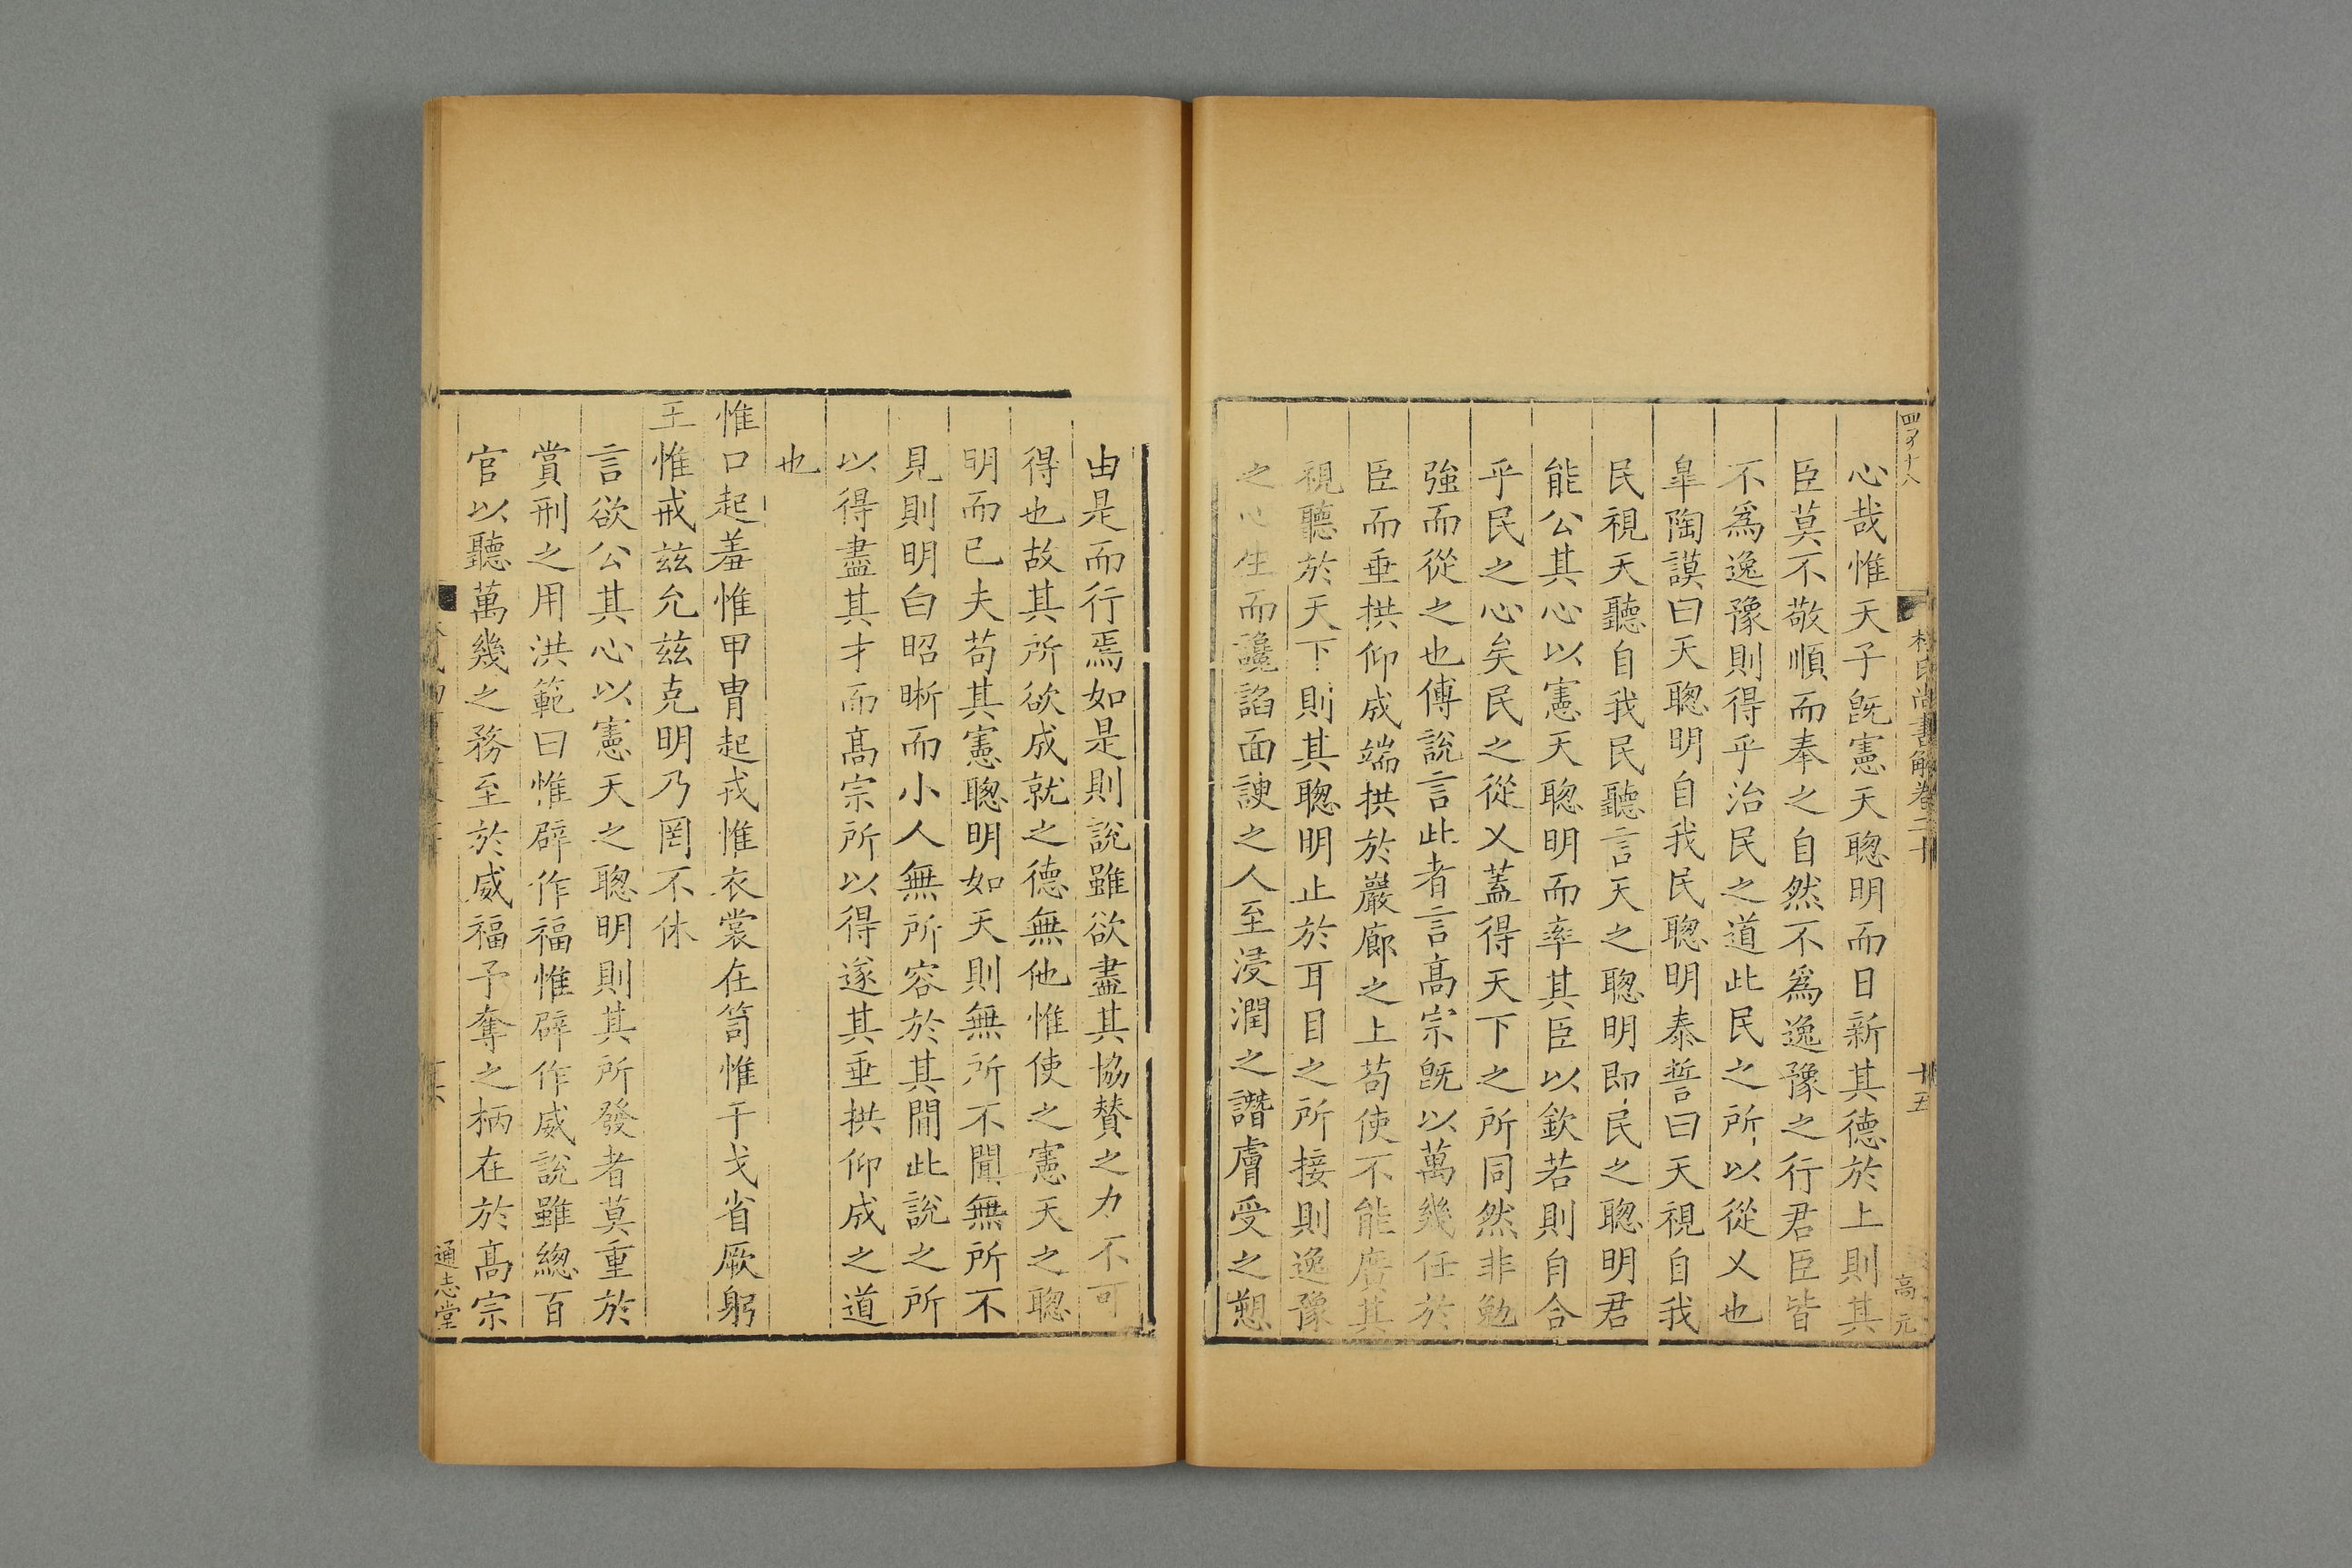 四百十八
林氏尚書解卷二十
十五
高元
心哉惟天子旣憲天聰明而日新其德於上則其
臣莫不敬順而奉之自然不爲逸豫之行君臣皆
不爲逸豫則得乎治民之道此民之所以從乂也
臯陶謨曰天聰明自我民聰明泰誓曰天視自我
民視天聽自我民聽言天之聰明即民之聰明君
能公其心以憲天聰明而率其臣以欽若則自合
乎民之心矣民之從乂蓋得天下之所同然非勉
強而從之也傅說言此者言高宗旣以萬幾任於
臣而垂拱仰成端拱於巖廊之上苟使不能廣其
視聽於天下則其聰明止於耳目之所接則逸豫
之心生而讒諂面諛之人至浸潤之譖膚受之愬
由是而行焉如是則說雖欲盡其協賛之力不可
得也故其所欲成就之德無他惟使之憲天之聰
明而已夫苟其憲聰明如天則無所不聞無所不
見則明白昭晰而小人無所容於其間此說之所
以得盡其才而高宗所以得遂其垂拱仰成之道
也
惟口起羞惟甲胄起戎惟衣裳在笥惟干戈省厥躬
王惟戒兹允兹克明乃罔不休
言欲公其心以憲天之聰明則其所發者莫重於
賞刑之用洪範曰惟辟作福惟辟作威說雖總百
官以聽萬幾之務至於威福予奪之柄在於高宗
通志堂